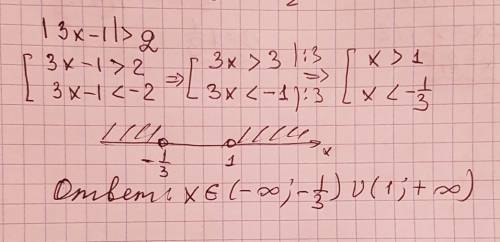 |3x-1|>2
[ 3x-1>2 => [ 3x>3 |:3 => [ x>1
[ 3x-1<-2 [ 3x<-1 |:3 [ x<-1/3
-1/3 1 x
Ответ: x∈(-∞;-1/3)∪(1;+∞)